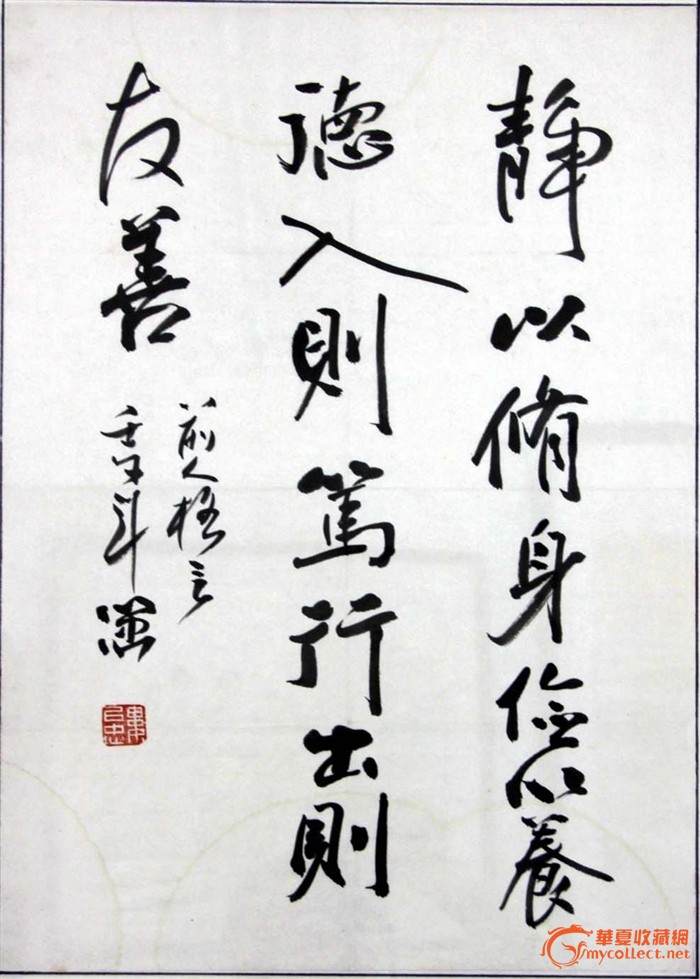 靜以脩身儉以養
德入則篤行出則
友善
前人格言
壬午年
華夏收藏網
mycollect.net